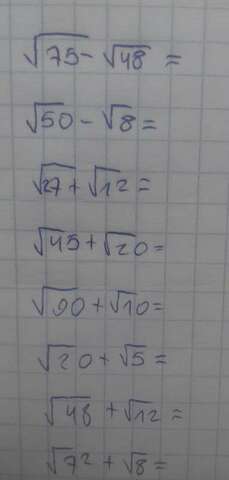 √75 - √48 =
√50 - √8 =
√27 + √12 =
√45 + √20 =
√90 + √10 =
√20 + √5 =
√48 + √12 =
√72 + √8 =